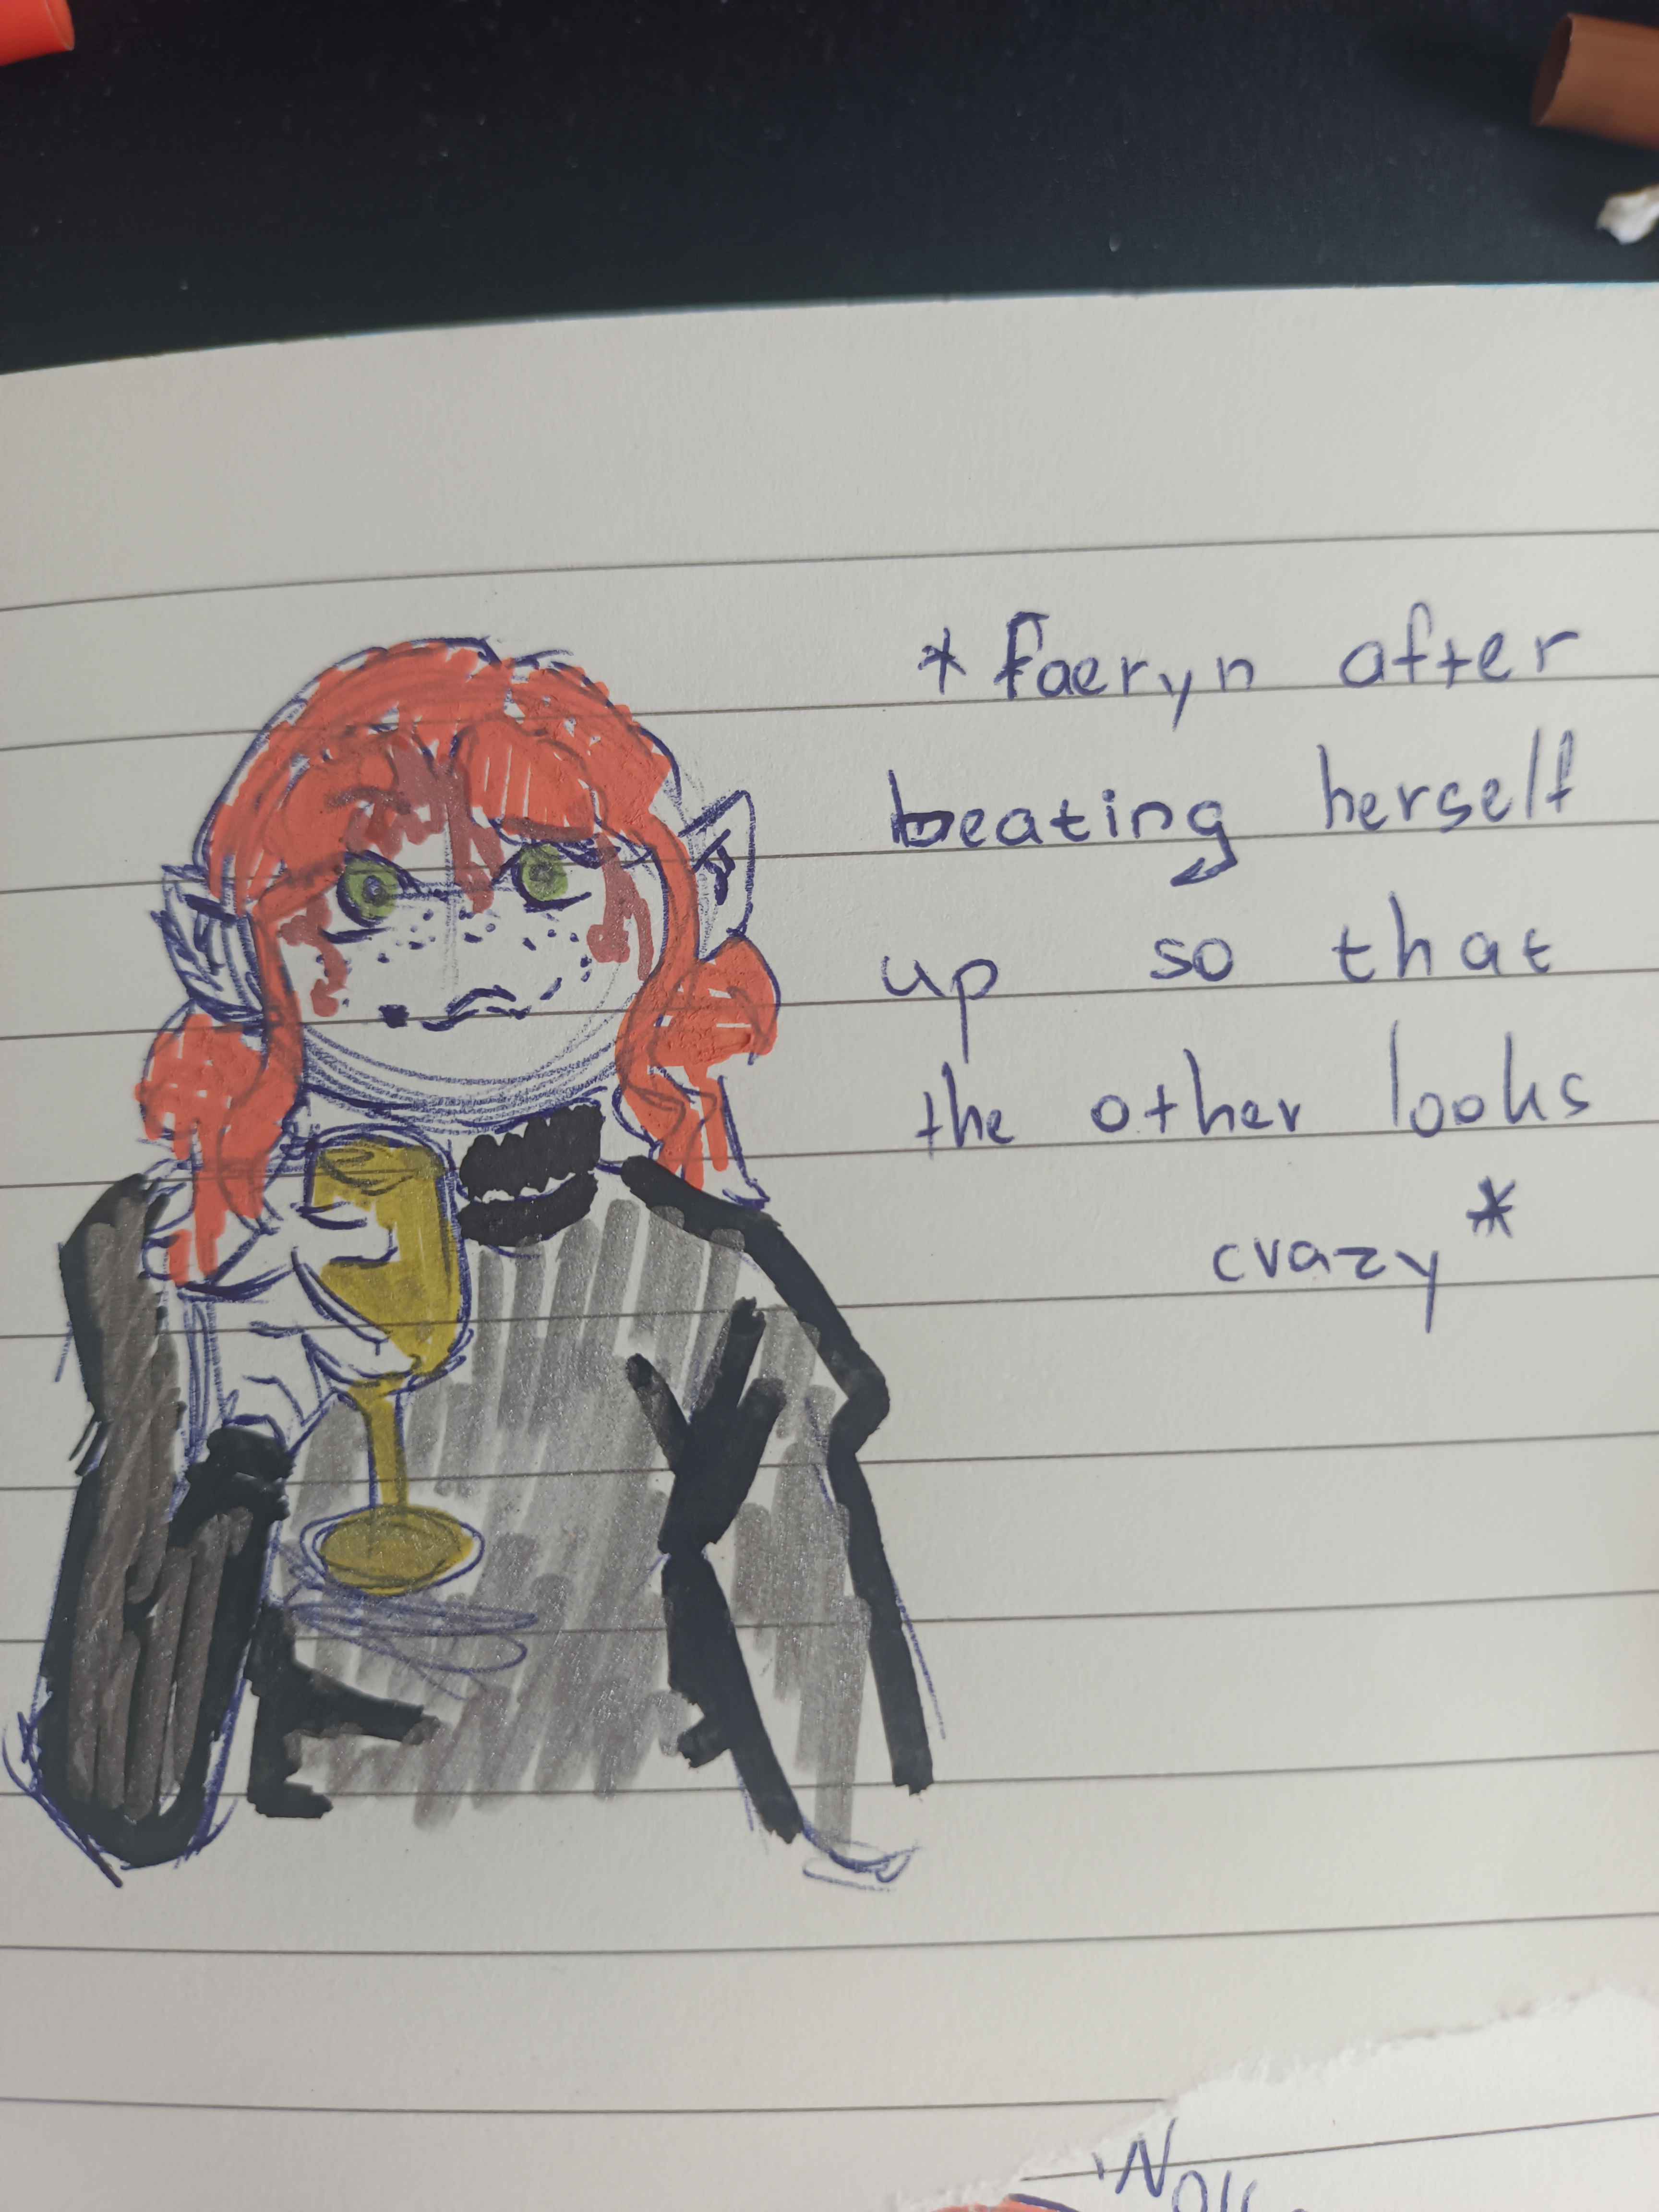 *Faeryn after
beating herself
up so that
the other looks
crazy*